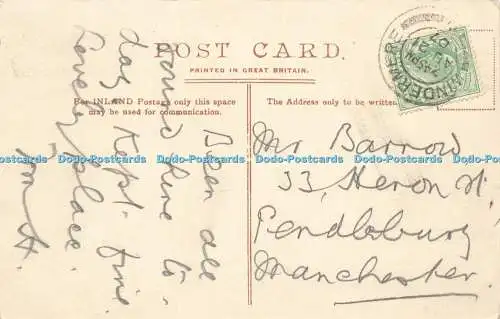 POST CARD.
PRINTED IN GREAT BRITAIN.
For INLAND Postage only this space
may be used for communication.
The Address only to be written
WINDERMERE
Been all
round here to-
day. Kept fine.
Lovely place.
Mr Barrow
33, Heron St,
Pendlebury
Manchester.
Dodo-Postcards Dodo-Postcards Dodo-Postcards Dodo-Postcards Dodo-Postcards Dodo-Postcards